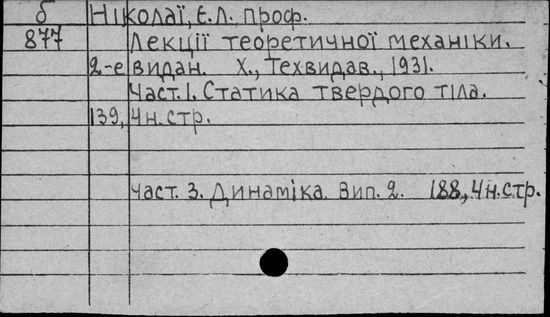 б Ніколаї, Є.Л. проф.
877 Лекції теоретичної механіки.
2-е видан. Х., Техвидав., 1931.
Част. 1. Статика твердого тіла.
139, 4 н. стр.
Част. 3. Динаміка. Вип. 2. 188, 4 н. стр.